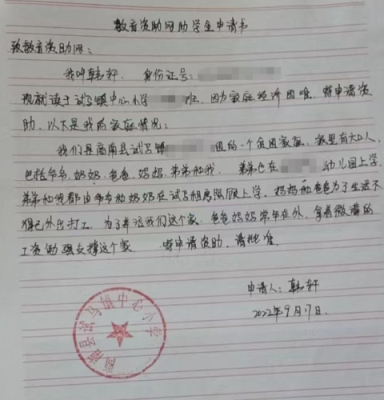 教育资助网助学生申请书
致教育资助网：
我叫韩轩，身份证号：
现就读于试马镇中心小学 班，因为家庭经济困难，特申请资
助，以下是我的家庭情况：
我们是商南县试马镇 组的一个贫困家庭，家里有六口人
包括爷爷、奶奶、爸爸、妈妈、弟弟和我。弟弟也在 幼儿园上学，
弟弟和我都由爷爷和奶奶在试马租房照顾上学，妈妈和爸爸为了生活不
得已外出打工，为了养活我们这个家，爸爸妈妈常年在外，拿着微薄的
工资勉强支撑这个家 特申请资助，请批准
申请人：韩轩
2022年9月17日
商南县试马镇中心小学